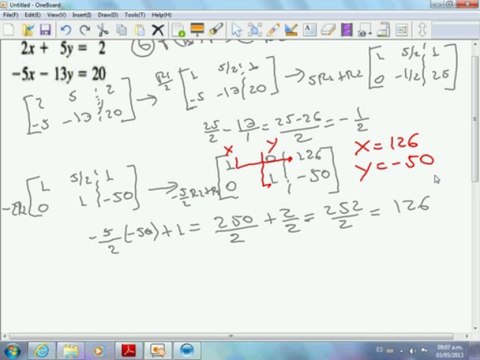 Untitled - OneBoard
File Edit View Insert Format Tools Help
2x + 5y = 2
−5x − 13y = 20
[2 5 ⋮ 2 / −5 −13 ⋮ 20] → R1/2 [1 5/2 ⋮ 1 / −5 −13 ⋮ 20] → 5R1+R2 [1 5/2 ⋮ 1 / 0 −1/2 ⋮ 25]
25/2 − 13/1 = 25−26/2 = −1/2
x y
−2R2 [1 5/2 ⋮ 1 / 0 1 ⋮ −50] → −5/2 R2+R1 [1 0 ⋮ 126 / 0 1 ⋮ −50]
x = 126
y = −50
−5/2 (−50) + 1 = 250/2 + 2/2 = 252/2 = 126
ES
09:07 a.m.
03/05/2013